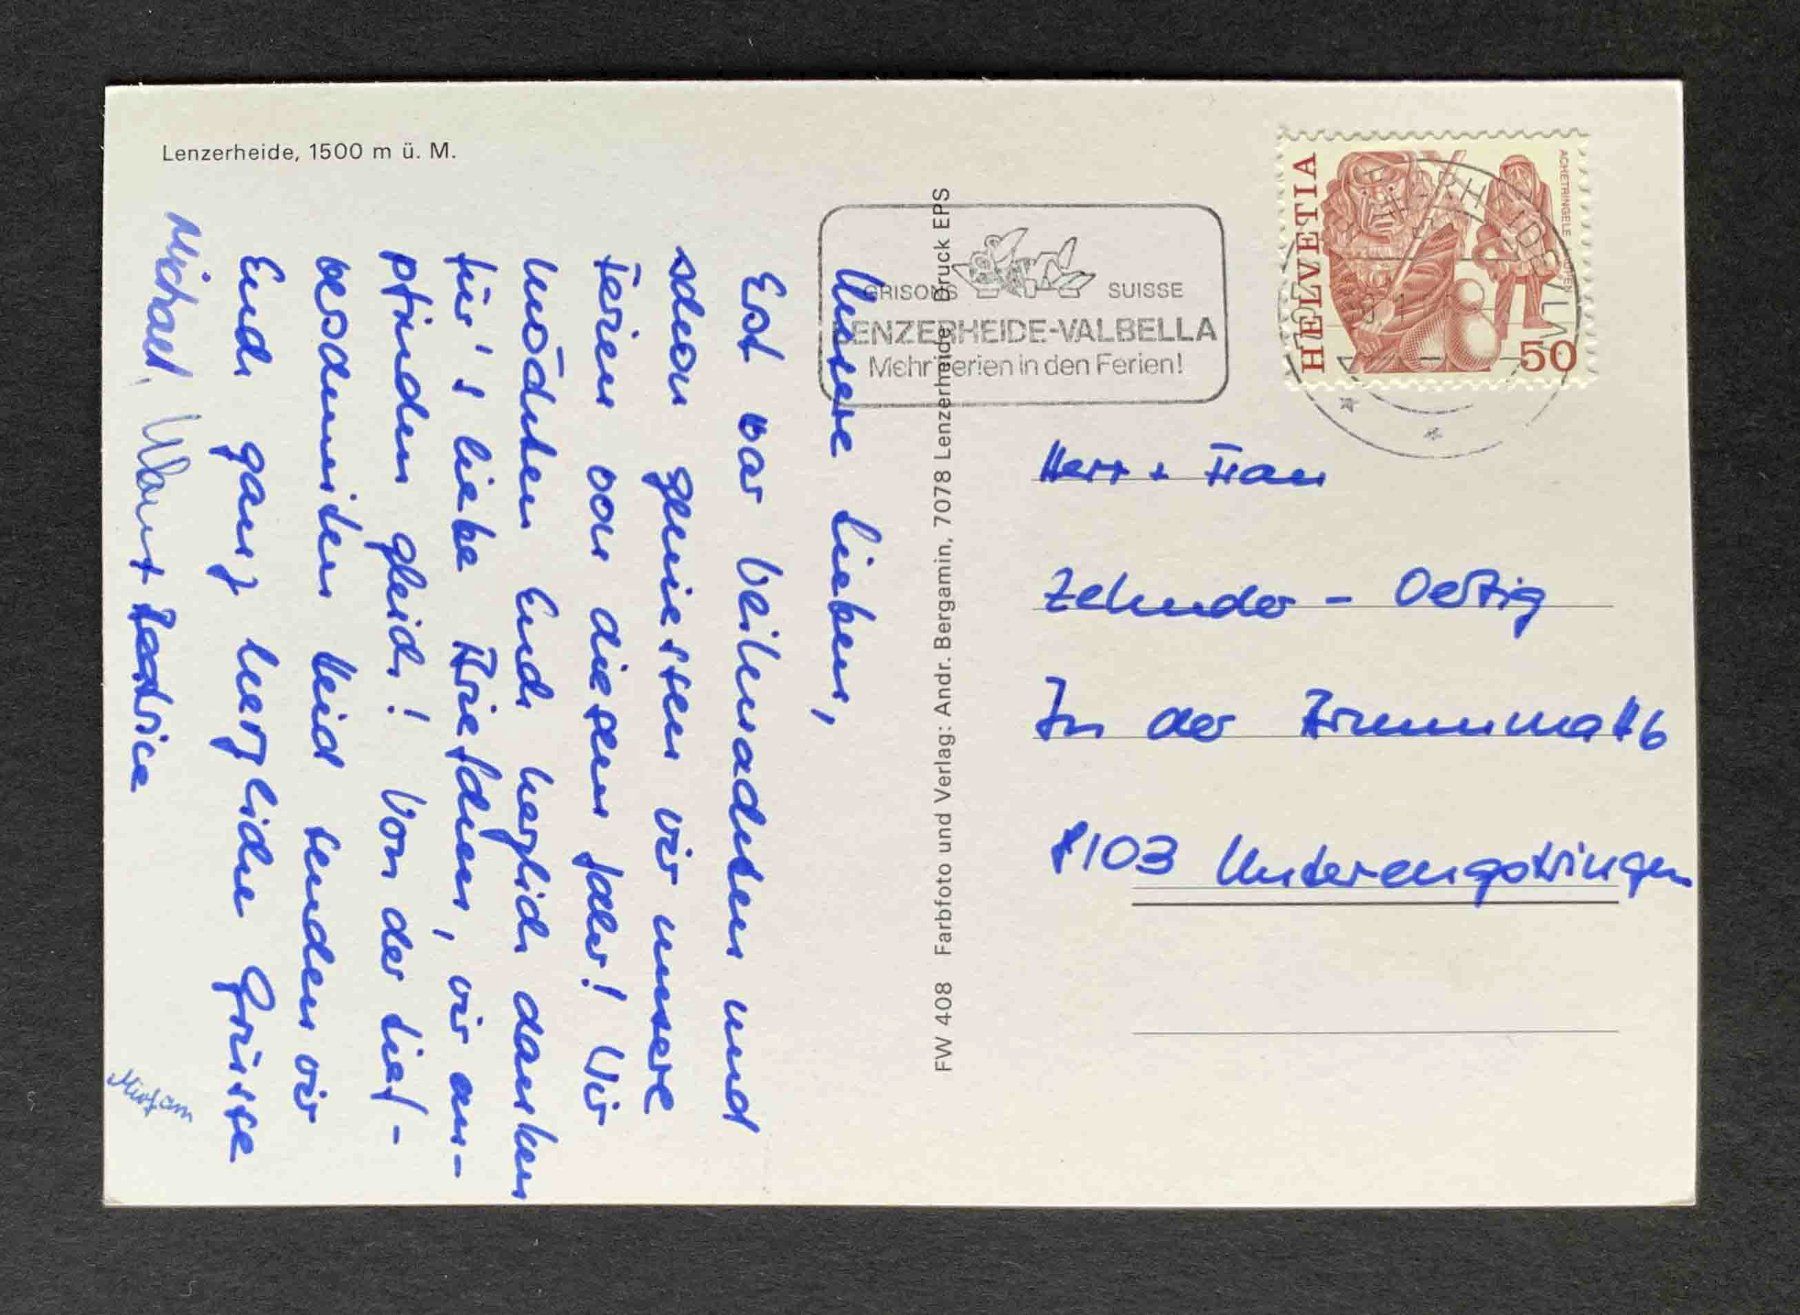 Lenzerheide, 1500 m ü. M.
Unsere lieben,
Est war Weihnachten und
schon geniessen wir unsere
Ferien von diesem Jahr! Wir
möchten Euch herzlich danken
für's liebe Briefchen, wir em-
pfinden gleich! Von der tief-
verschneiten Heid senden wir
Euch ganz herzliche Grüsse
Michael, + Beatrice
Mirjam
FW 408 Farbfoto und Verlag: Andr. Bergamin, 7078 Lenzerheide Druck EPS
GRISONS SUISSE
LENZERHEIDE-VALBELLA
Mehr Ferien in den Ferien!
HELVETIA
ACHETRINGELE
50
Herr + Frau
Zehnder - Oertig
In der Brunnmatt 6
8103 Unterengstringen